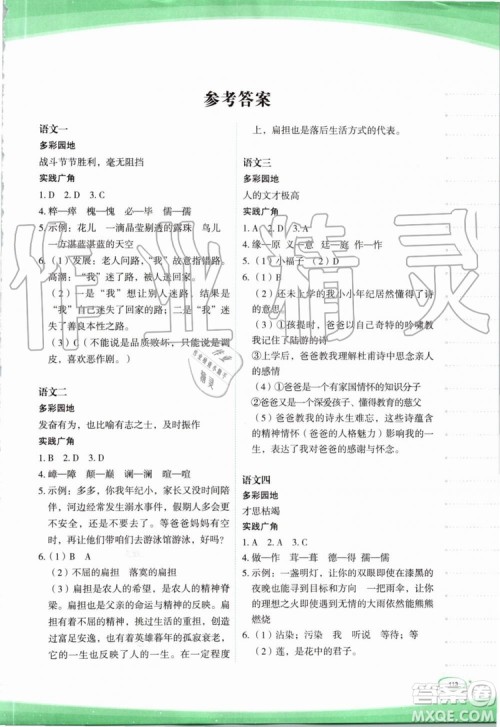 参考答案
语文一
多彩园地
战斗节节胜利，毫无阻挡
实践广角
1. D  2. D  3. C
4. 粹—瘁  愧—愧  必—毕  儒—儒
5. 示例：花儿  一滴晶莹剔透的露珠  鸟儿
一方湛蓝湛蓝的天空
6.（1）发展：老人问路，“我”指错路。
高潮：
（2）一是“我”想让别人迷路，结果
“我”自己迷了路；二是“我”迷失
了善良本性之路。
（3）C（不能说爸爸没有同情心，是
喜欢恶作剧。）
语文二
多彩园地
发奋有为，也比喻有志之士，及时振作
实践广角
1. B  2. D  3. C
4. 嶂—障  颠—巅  谰—澜  暄—喧
5. 示例：多多，你我年纪小，家长又不在，
万一溺水怎么办？现在天气热，小朋友
经常发生溺水事情。等爸爸妈妈有空
时，再让他们带咱们去游泳馆游泳，
好吗？
6.（1）B  A
（2）不屈的扁担  落寞的扁担
（3）扁担是农人的希望，是农人的精神脊
梁。扁担是父亲的命运与精神的反映。
扁担像英雄，也有着英雄暮年的孤寂，
衰落，无奈，伤感的精神。在一定程度
上，扁担也是落后生活方式的代表。
语文三
多彩园地
人的文才极高
实践广角
1. A  2. D  3. A
4. 缘—原  廷—庭
5. 示例：
6.（1）B  A
（2）还未上学的我小小年纪居然懂得了
诗意
（3）①孩提时，爸爸抑扬顿挫的吟啸教
我认识了陆游的诗
③上学前，爸爸教我理解杜甫诗中思念亲
人的感情
（4）①爸爸是一个有家国情怀的知识分子
②爸爸是一个深爱孩子、懂教育的慈父
（5）爸爸教我的诗永生难忘，这些诗蕴
含的精神情怀（爸爸的人格魅力）影响我
的一生。表达了我对爸爸的感谢。
语文四
多彩园地
才思枯竭
实践广角
1. A  2. C  3. D
4. 做—作
5. 示例：一盏明灯，让你的双眼即使在漆黑
的夜晚也能够看见光明  一把雨伞，使你
的心灵即使在无情的大雨依然能熊熊
燃烧
6.（1）沾染；污染  我  听说  等待；等
（2）莲，是花中的君子。
113
作业精灵
答案圈
MXQE.COM